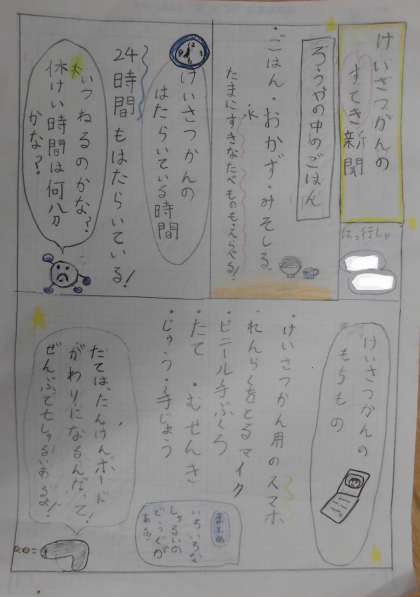 けいさつかんの
すてき新聞
はっ行しゃ
ろうやの中のごはん
・ごはん・おかず・みそしる
・水
たまにすきなたべものもえらべる!
けいさつかんの
はたらいている時間
24時間もはたらいている!
いつねるのかな?
休けい時間は何分
かな?
けいさつかんの
もちもの
・けいさつかん用のスマホ
・れんらくをとるマイク
・ビニール手ぶくろ
・たて ・むせんき
・じゅう・手じょう
まとめ
いろいろな
しゅるいの
どうぐが
ある!
たてはたんけんボード
がわりになるんだって!
ぜんぶで七しゅるいあるよ!